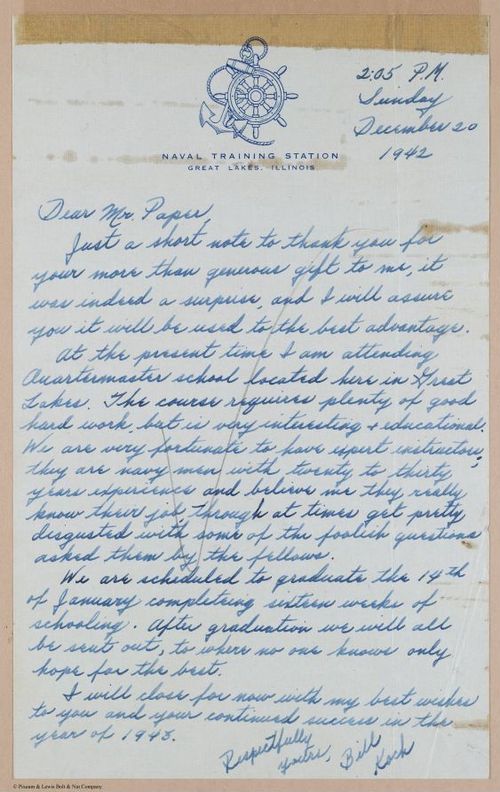 2:05 P.M.
Sunday
December 20
1942
NAVAL TRAINING STATION
GREAT LAKES, ILLINOIS
Dear Mr. Paper,
Just a short note to thank you for
your more than generous gift to me, it
was indeed a surprise, and I will assure
you it will be used to the best advantage.
At the present time I am attending
Quartermaster school located here in Great
Lakes. The course requires plenty of good
hard work, but is very interesting + educational.
We are very fortunate to have expert instructors,
they are navy men with twenty to thirty
years experience and believe me they really
know their job through at times get pretty
disgusted with some of the foolish questions
asked them by the fellows.
We are scheduled to graduate the 14th
of January completeing sixteen weeks of
schooling. After graduation we will all
be sent out, to where no one knows only
hope for the best.
I will close for now with my best wishes
to you and your continued success in the
year of 1943.
Respectfully
yours,
Bill
Koch
© Pioneer & Lewis Bolt & Nut Company